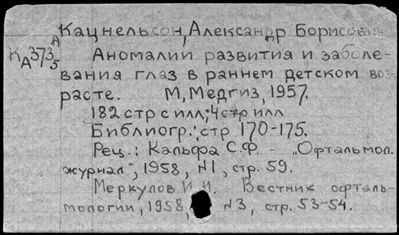 Кацнельсон, Александр Борисович
КА373 А5
Аномалии развития и заболе-
вания глаз в раннем детском воз
расте. М, Медгиз, 1957.
182 стр с илл; 4 стр илл
Библиогр.: стр 170-175.
Рец.: Кальфа С.Ф. - "Офтальмол.
журнал", 1958, N1, стр. 59.
Меркулов И.И. Вестник офталь-
мологии, 1958, N3, стр. 53-54.